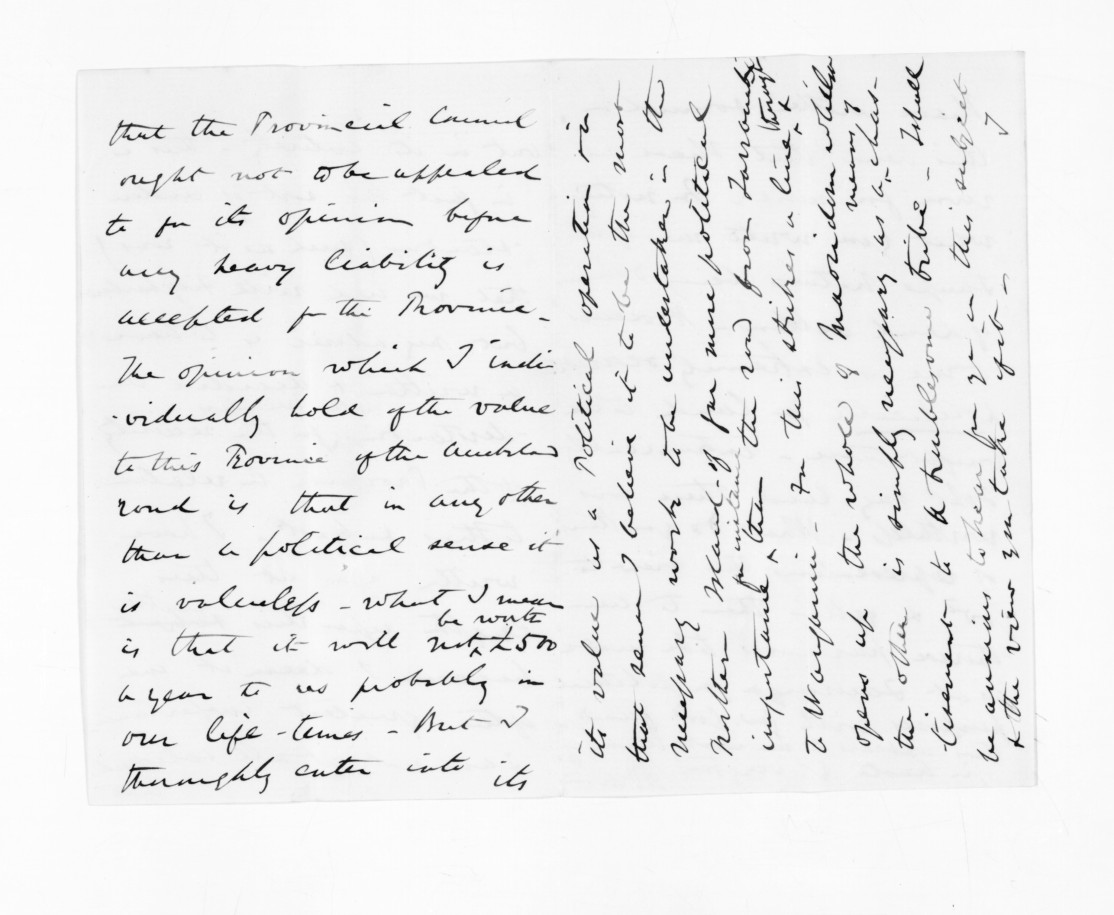 that the Provincial Council
ought not to be appealed
to for its opinion before
any heavy liability is
accepted for the Province -
The opinion which I indi
-vidually hold of the value
to this Province of the Auckland
road is that in any other
than a political sense it
is valueless - what I mean
be worth
is that it will not £500
a year to us probably in
our life-times - But I
thoroughly enter into its
its value as a Political operation & in
that sense I believe it to be the most
necessary work to be undertaken in the
Northern Island - of far more political
importance for instance than the road from Taranaki
to Wanganui - for this strikes a line through &
opens up the whole of Maoridom while
the other is simply necessary as a means of chas-
tisement to a troublesome tribe - I shall
be anxious to hear fm you in this subject
& the view you take of it - I